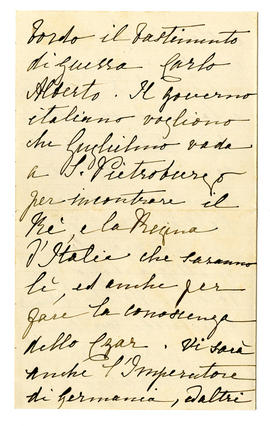 bordo il bastimento
di guerra Carlo
Alberto. Il governo
italiano vogliono
che Guglielmo vada
a S. Pietroburgo
per incontrare il
Rè, e la Regina
d'Italia che saranno
lì, ed anche per
fare la conoscenza
dello Czar. Vi sarà
anche l'Imperatore
di Germania, ed altri